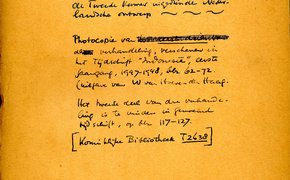 de Tweede Kamer ingediende Neder-
landsche ontwerp
Photocopie van
verhandeling, verschenen in
het Tijdschrift "Indonesië", eerste
jaargang, 1947-1948, blz 62-72.
Uitgave van W van Hoeve-den Haag.
Het tweede deel van den verhande-
ling is te vinden in genoemd
tijdschrift, op blz 117-127.
[Koninklijke Bibliotheek T2638]